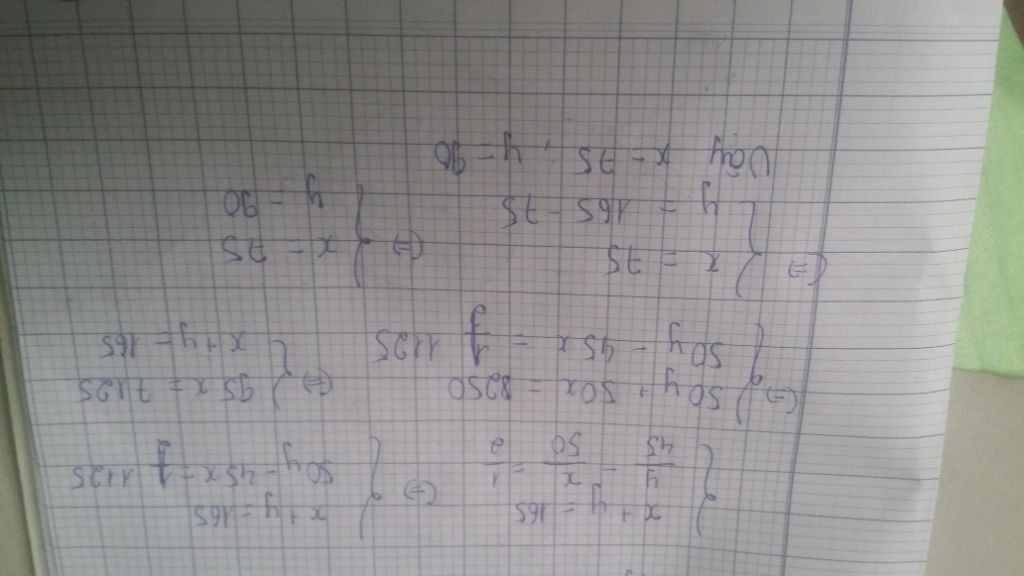 { x + y = 165
y/45 - x/50 = 1/2
⇔ { x + y = 165
50y - 45x = 1125
⇔ { 50y + 50x = 8250
50y - 45x = 1125
⇔ { 95x = 7125
x + y = 165
⇔ { x = 75
y = 165 - 75
⇔ { x = 75
y = 90
Vậy x = 75, y = 90